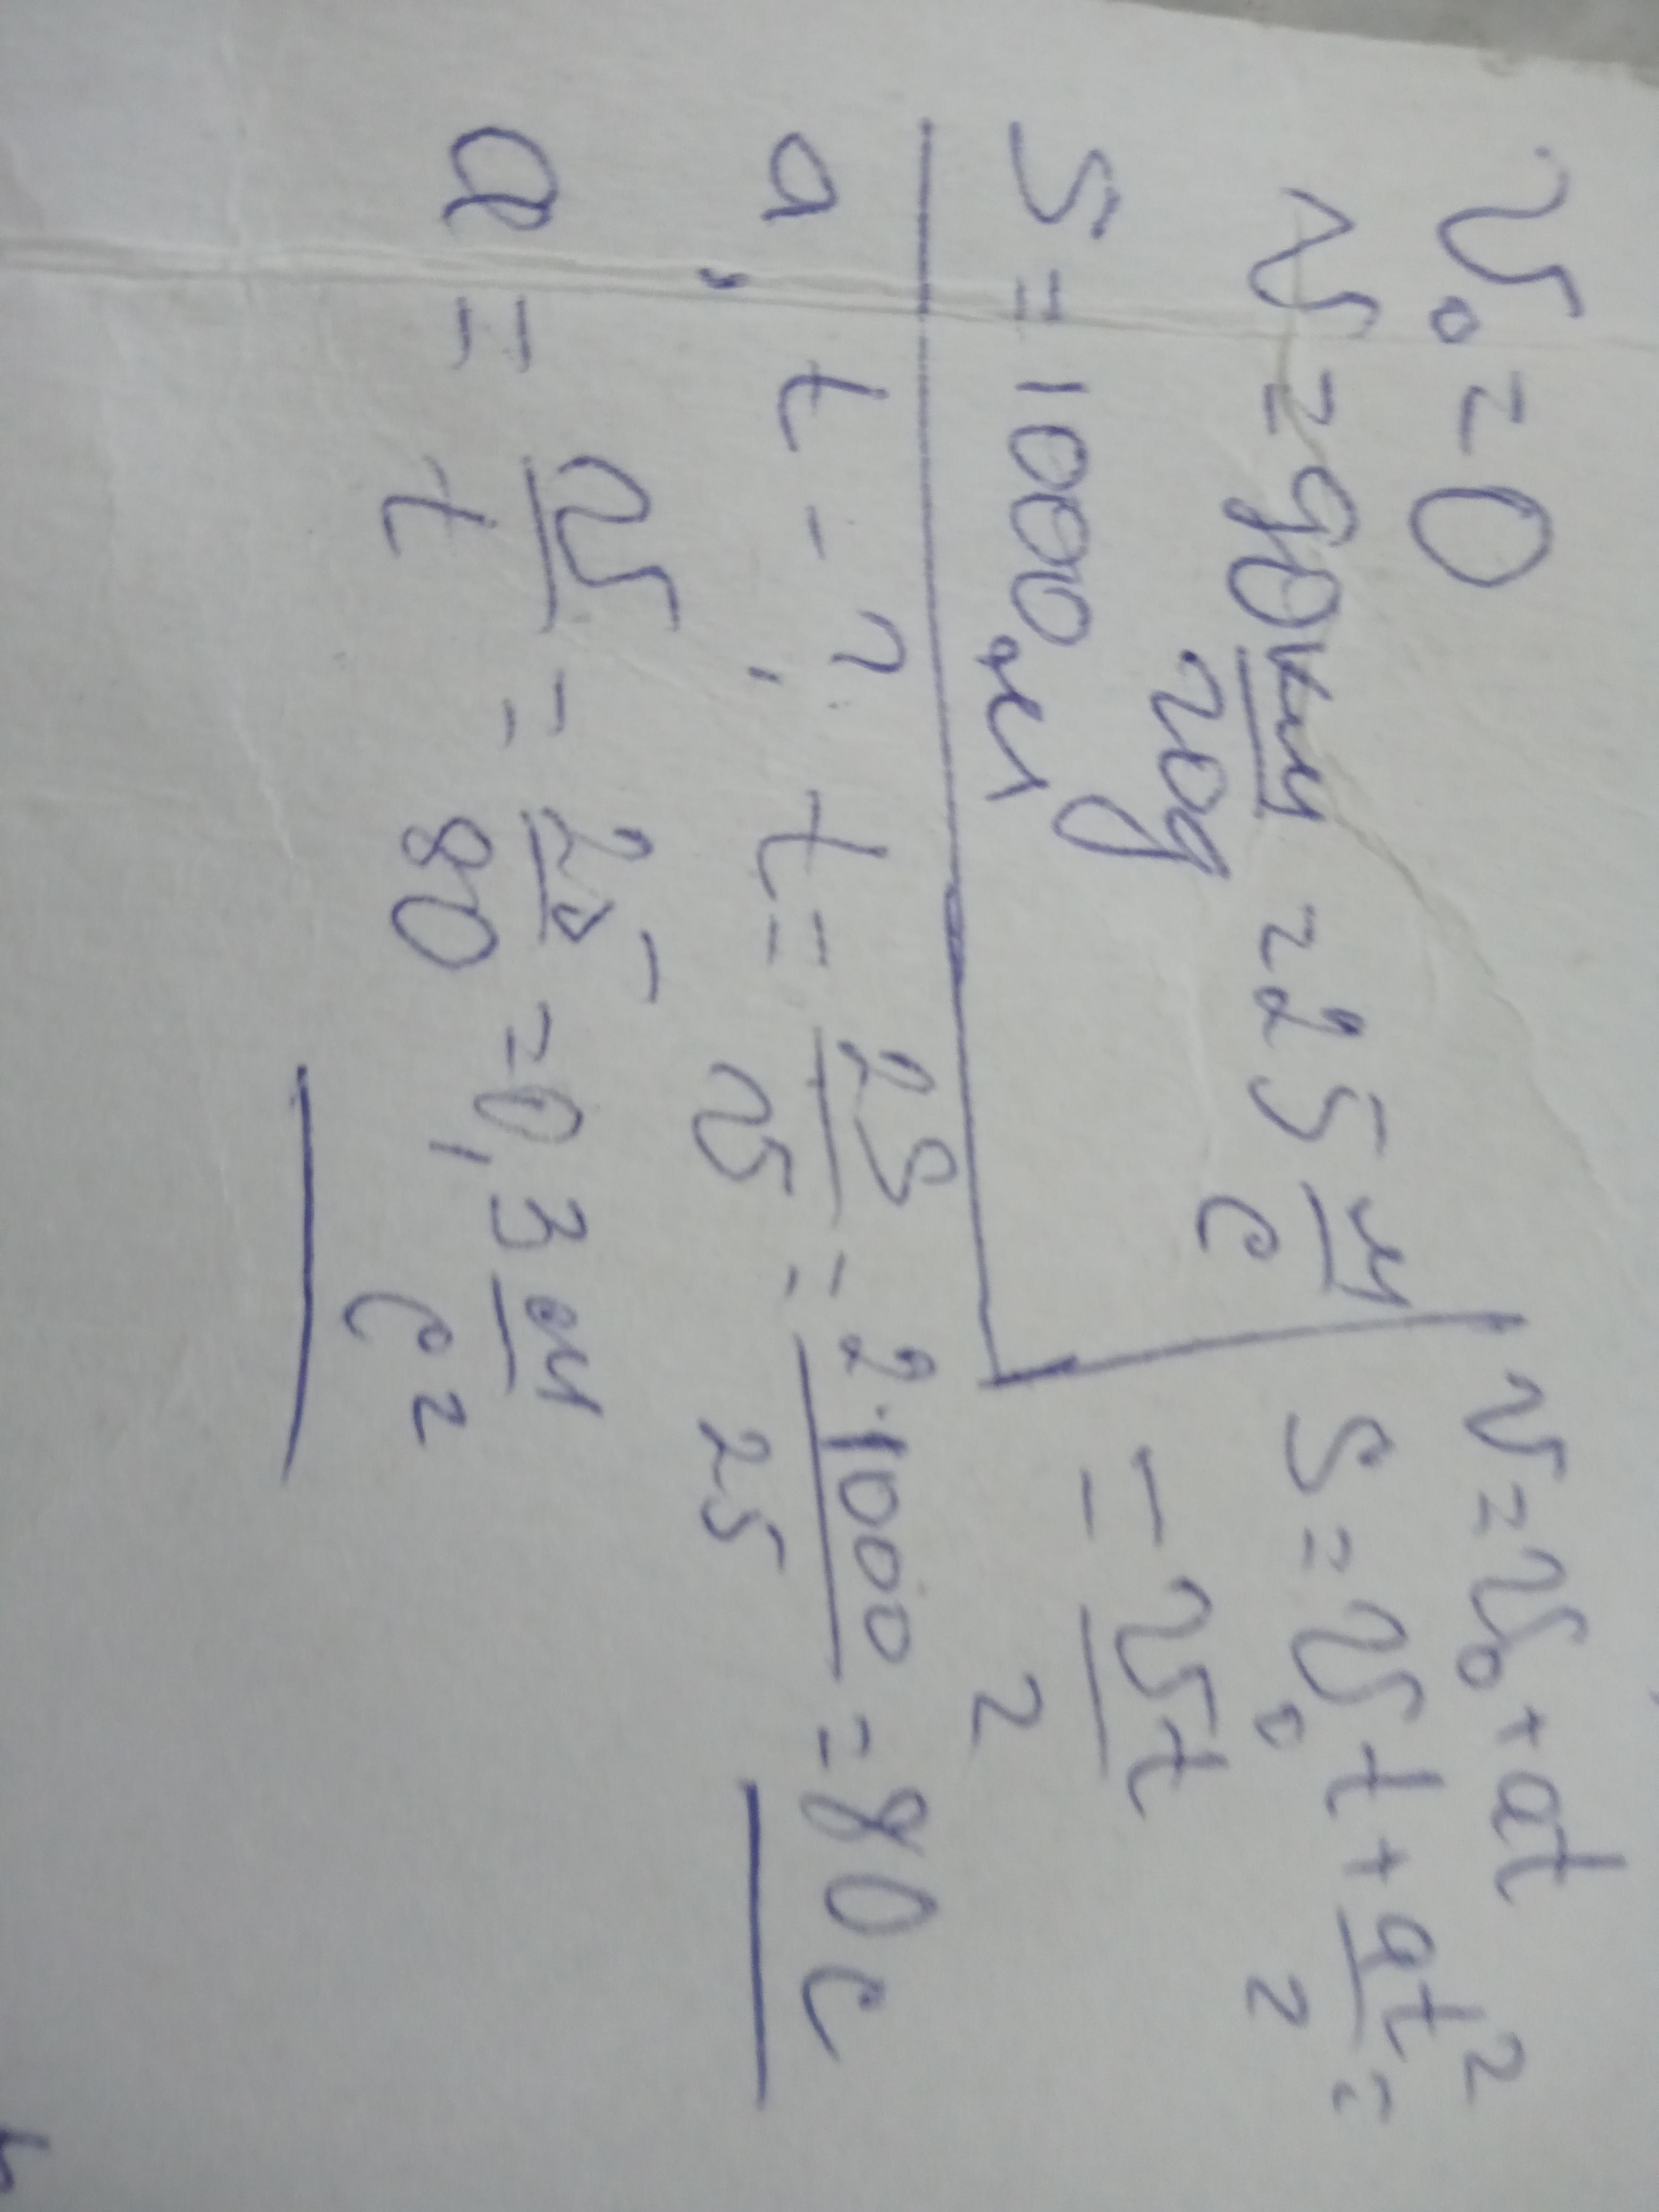 v₀ = 0
v = 90 км/год = 25 м/с
S = 1000 м
a, t - ?
v = v₀ + at
S = v₀t + at²/2 =
= vt/2
t = 2S/v = 2·1000/25 = 80 c
a = v/t = 25/80 = 0,3 м/c²